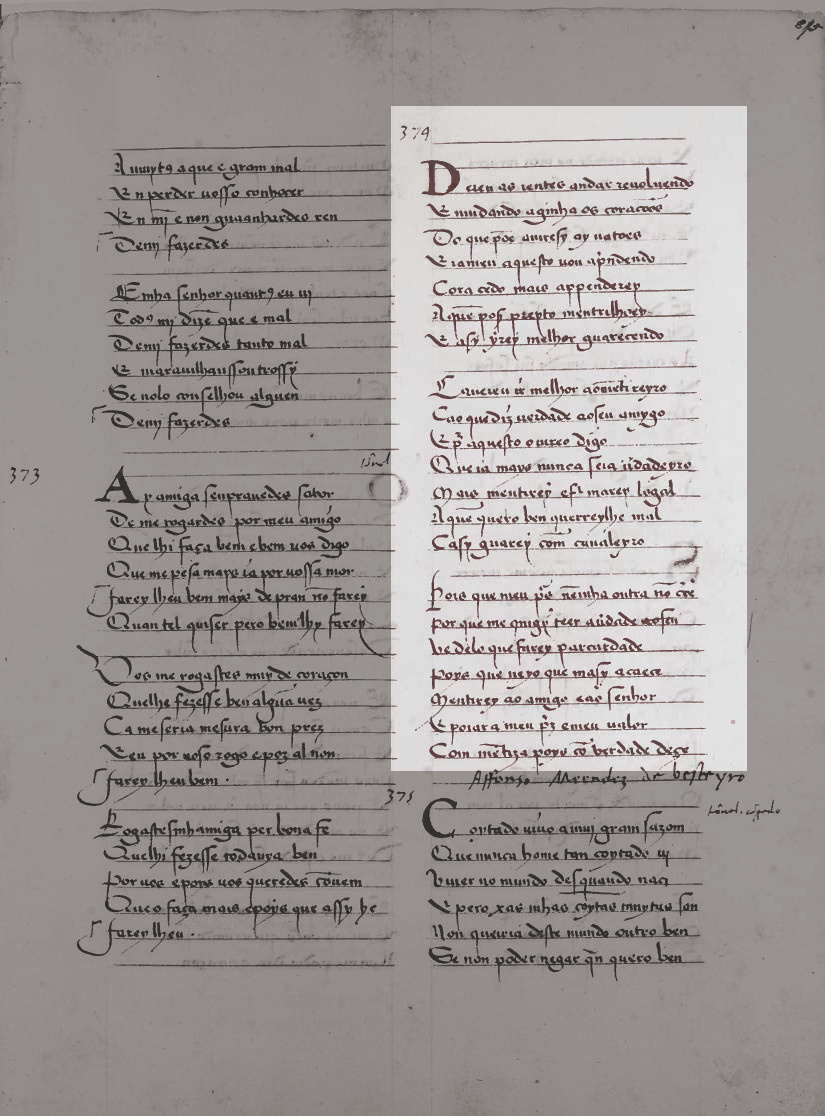 A muytꝯ a que e gram mal
E n perder uosso conhocer
E n mĩ e non guaanhardes ren
Demj fazerdes
E mha senhor quantꝯ eu uj
Todꝯ mj dizẽ que e mal
Demj fazerdes tanto mal
E marauilhanssontrossy
Se uolo conselhou alguen
Demj fazerdes
373
Ay amiga senpraue des sabor
De me rogardes por meu amigo
Que lhi faça bem e bem uos digo
Que me pesa mays ia por uossa mor
farey lheu bem mays de pran nõ farej
Quan tel quiser pero bem lhy farey
Vos me rogastes muy de coraçon
Quelhe fezesse ben algũa uez
Ca me seria mesura bon prez
E eu por uoso rogo e poz al non
farey lheu bem
Rogastesmhamiga per bona fe
Quelhi fezesse todauya ben
Por uos e poys uos queredes cõuem
Que o faça mais e poys que assy he
farey lheu
374
D eu en as ientes andar reuoluendo
E mudando aginha os corações
Do que põe antresy ay uarões
E iameu aquesto uou ap̃ndendo
Cora cedo mais apprenderey
A quẽ poser preyto mentirlhey
E asy yrey melhor guarecendo
C aueieu ir̃ melhor ao mẽtireyro
Cao que diz uerdade ao seu amygo
E p̃ aquesto o iureo digo
Que ia mays nunca seia uerdadeyro
Mais mentirey e firmarey logal
A que quero ben querreylhe mal
E asy guarey com̃ caualeyro
Pois que meu p̃z nẽmha onrra nõ cr̃e
por que me quigi teer auerdade
Vedelo que farey par caridade
poys que ueyo que masy acaece
Mentirey ao amigo e ao senhor
E poiara meu p̃z e meu ualor
Com mẽtira poys cõ verdade deçe
Affonso Meendez de besteyro
375
C oytado uiuo a muj gram sazom
Que nunca home tan coytado uj
Viuer no mundo des quando naci
E pero xas mhas coytas muytas son
Non querria deste mundo outro ben
Se non poder negar q̃n quero ben